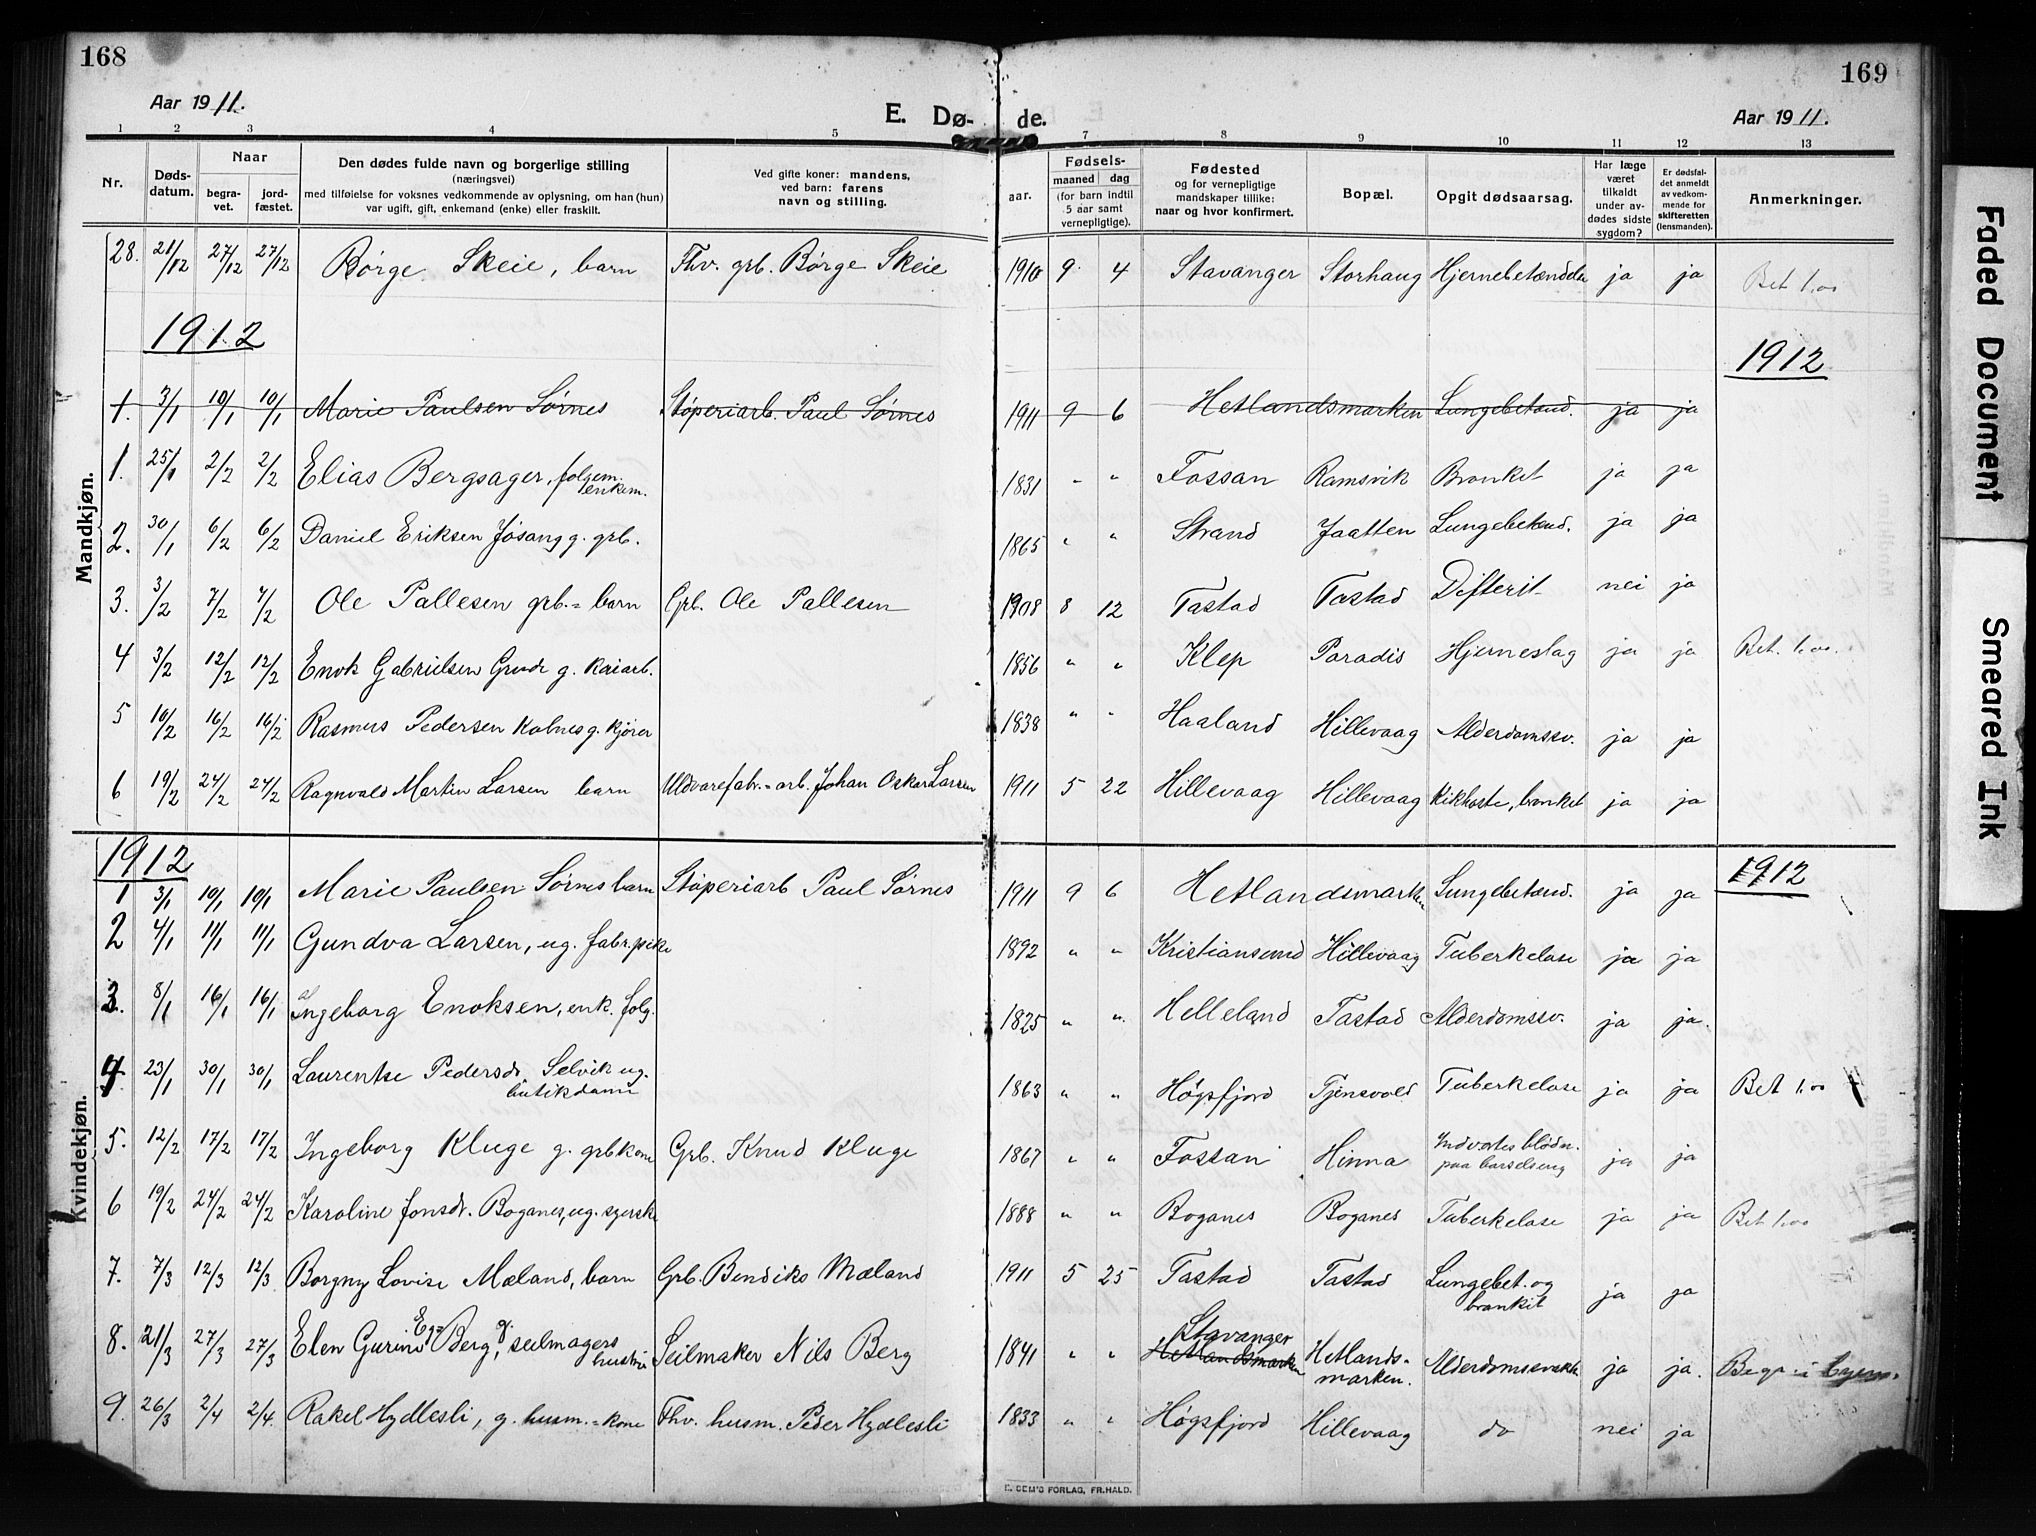 168
Aar 1911.
E. Dø-
de.
Aar 1911.
169
1 2 3 4 5 7 8 9 10 11 12 13
Nr.
Døds-
datum.
Naar
begra-
vet.
jord-
fæstet.
Den dødes fulde navn og borgerlige stilling
(næringsvei)
med tilføielse for voksnes vedkommende av oplysning, om han (hun)
var ugift, gift, enkemand (enke) eller fraskilt.
Ved gifte koner: mandens,
ved barn: farens
navn og stilling.
aar.
Fødsels-
maaned dag
(for barn indtil
5 aar samt
vernepligtige).
Fødested
og for vernepligtige
mandskaper tillike:
naar og hvor konfirmert.
Bopæl.
Opgit dødsaarsag.
Har læge
været
tilkaldt
under av-
dødes sidste
sygdom?
Er dødsfal-
det anmeldt
av vedkom-
mende for
skifteretten
(lensmanden).
Anmerkninger.
Mandkjøn.
28. 21/12 27/12 27/12 Børge Skeie, barn Fhv. grb. Børge Skeie 1910 9 4 Stavanger Storhaug Hjernebetændelse ja ja Bet 1.00
1912 1912
1. 3/1 10/1 10/1 Marie Paulsen Sørnes Støperiarb. Paul Sørnes 1911 9 6 Hetlandsmarken Lungebetænd. ja ja
1. 25/1 2/2 2/2 Elias Bergsager, folgem. enkem. 1831 " " Fossan Ramsvik Bronket ja ja
2. 30/1 6/2 6/2 Daniel Eriksen Jøsang g. grb. 1865 " " Strand Jaatten Lungebetænd. ja ja
3. 3/2 7/2 7/2 Ole Pallesen grb.= barn Grb. Ole Pallesen 1908 8 12 Tastad Tastad Difterit nei ja
4 3/2 12/2 12/2 Enok Gabrielsen Grude g. kaiarb. 1856 " " Klep Paradis Hjerneslag ja ja Bet. 1.00.
5 10/2 16/2 16/2 Rasmus Pedersen Kolnes g. kjører 1838 " " Haaland Hillevaag Alderdomssv. ja ja
6 19/2 24/2 24/2 Ragnvald Martin Larsen barn Uldvarefabr.=arb. Johan Oskar Larsen 1911 5 22 Hillevaag Hillevaag Kikhoste, bronket ja ja
Kvindekjøn.
1912 1912
1 3/1 10/1 10/1 Marie Paulsen Sørnes barn Støperiarb Paul Sørnes 1911 9 6 Hetlandsmarken Lungebetænd. ja ja
2 4/1 11/1 11/1 Gundva Larsen, ug. fabr.pike 1892 " " Kristiansund Hillevaag Tuberkelose ja ja
3. 8/1 16/1 16/1 Ingeborg Enoksen, enk. folg. 1825 " " Helleland Tastad Alderdomssv. ja ja.
4. 23/1 30/1 30/1 Laurentse Pedersdr Selvik ug. butikdame 1863 " " Høgsfjord Tjensvold Tuberkelose ja ja Bet 1.00
5. 12/2 17/2 17/2 Ingeborg Kluge g. grbkone Grb. Knud Kluge 1867 " " Fossan Hinna Indvortes blødn. paa barselseng ja ja
6 19/2 24/2 24/2 Karoline Jonsdr. Boganes, ug. syerske 1888 " " Boganes Boganes Tuberkelose ja ja Bet 1.00
7. 7/3 12/3 12/3 Borgny Lovise Mæland, barn Grb. Bendiks Mæland 1911 5 25 Tastad Tastad Lungebet. og bronkit ja ja
8. 21/3 27/3 27/3 Elen Gurine Berg, g. seilmagers hustru Seilmaker Nils Berg 1841 " " Stavanger Hetlandsmarken Hetlands-marken. Alderdomssvakh ja ja. Begr. i byen.
9. 26/3 2/4 2/4. Rakel Hydlesli, g. husm.=kone Fhv. husm. Peder Hydlesli 1833 " " Høgsfjord Hillevaag do nei ja
E. SEM'S FORLAG, FR.HALD.
Faded Document
Smeared Ink